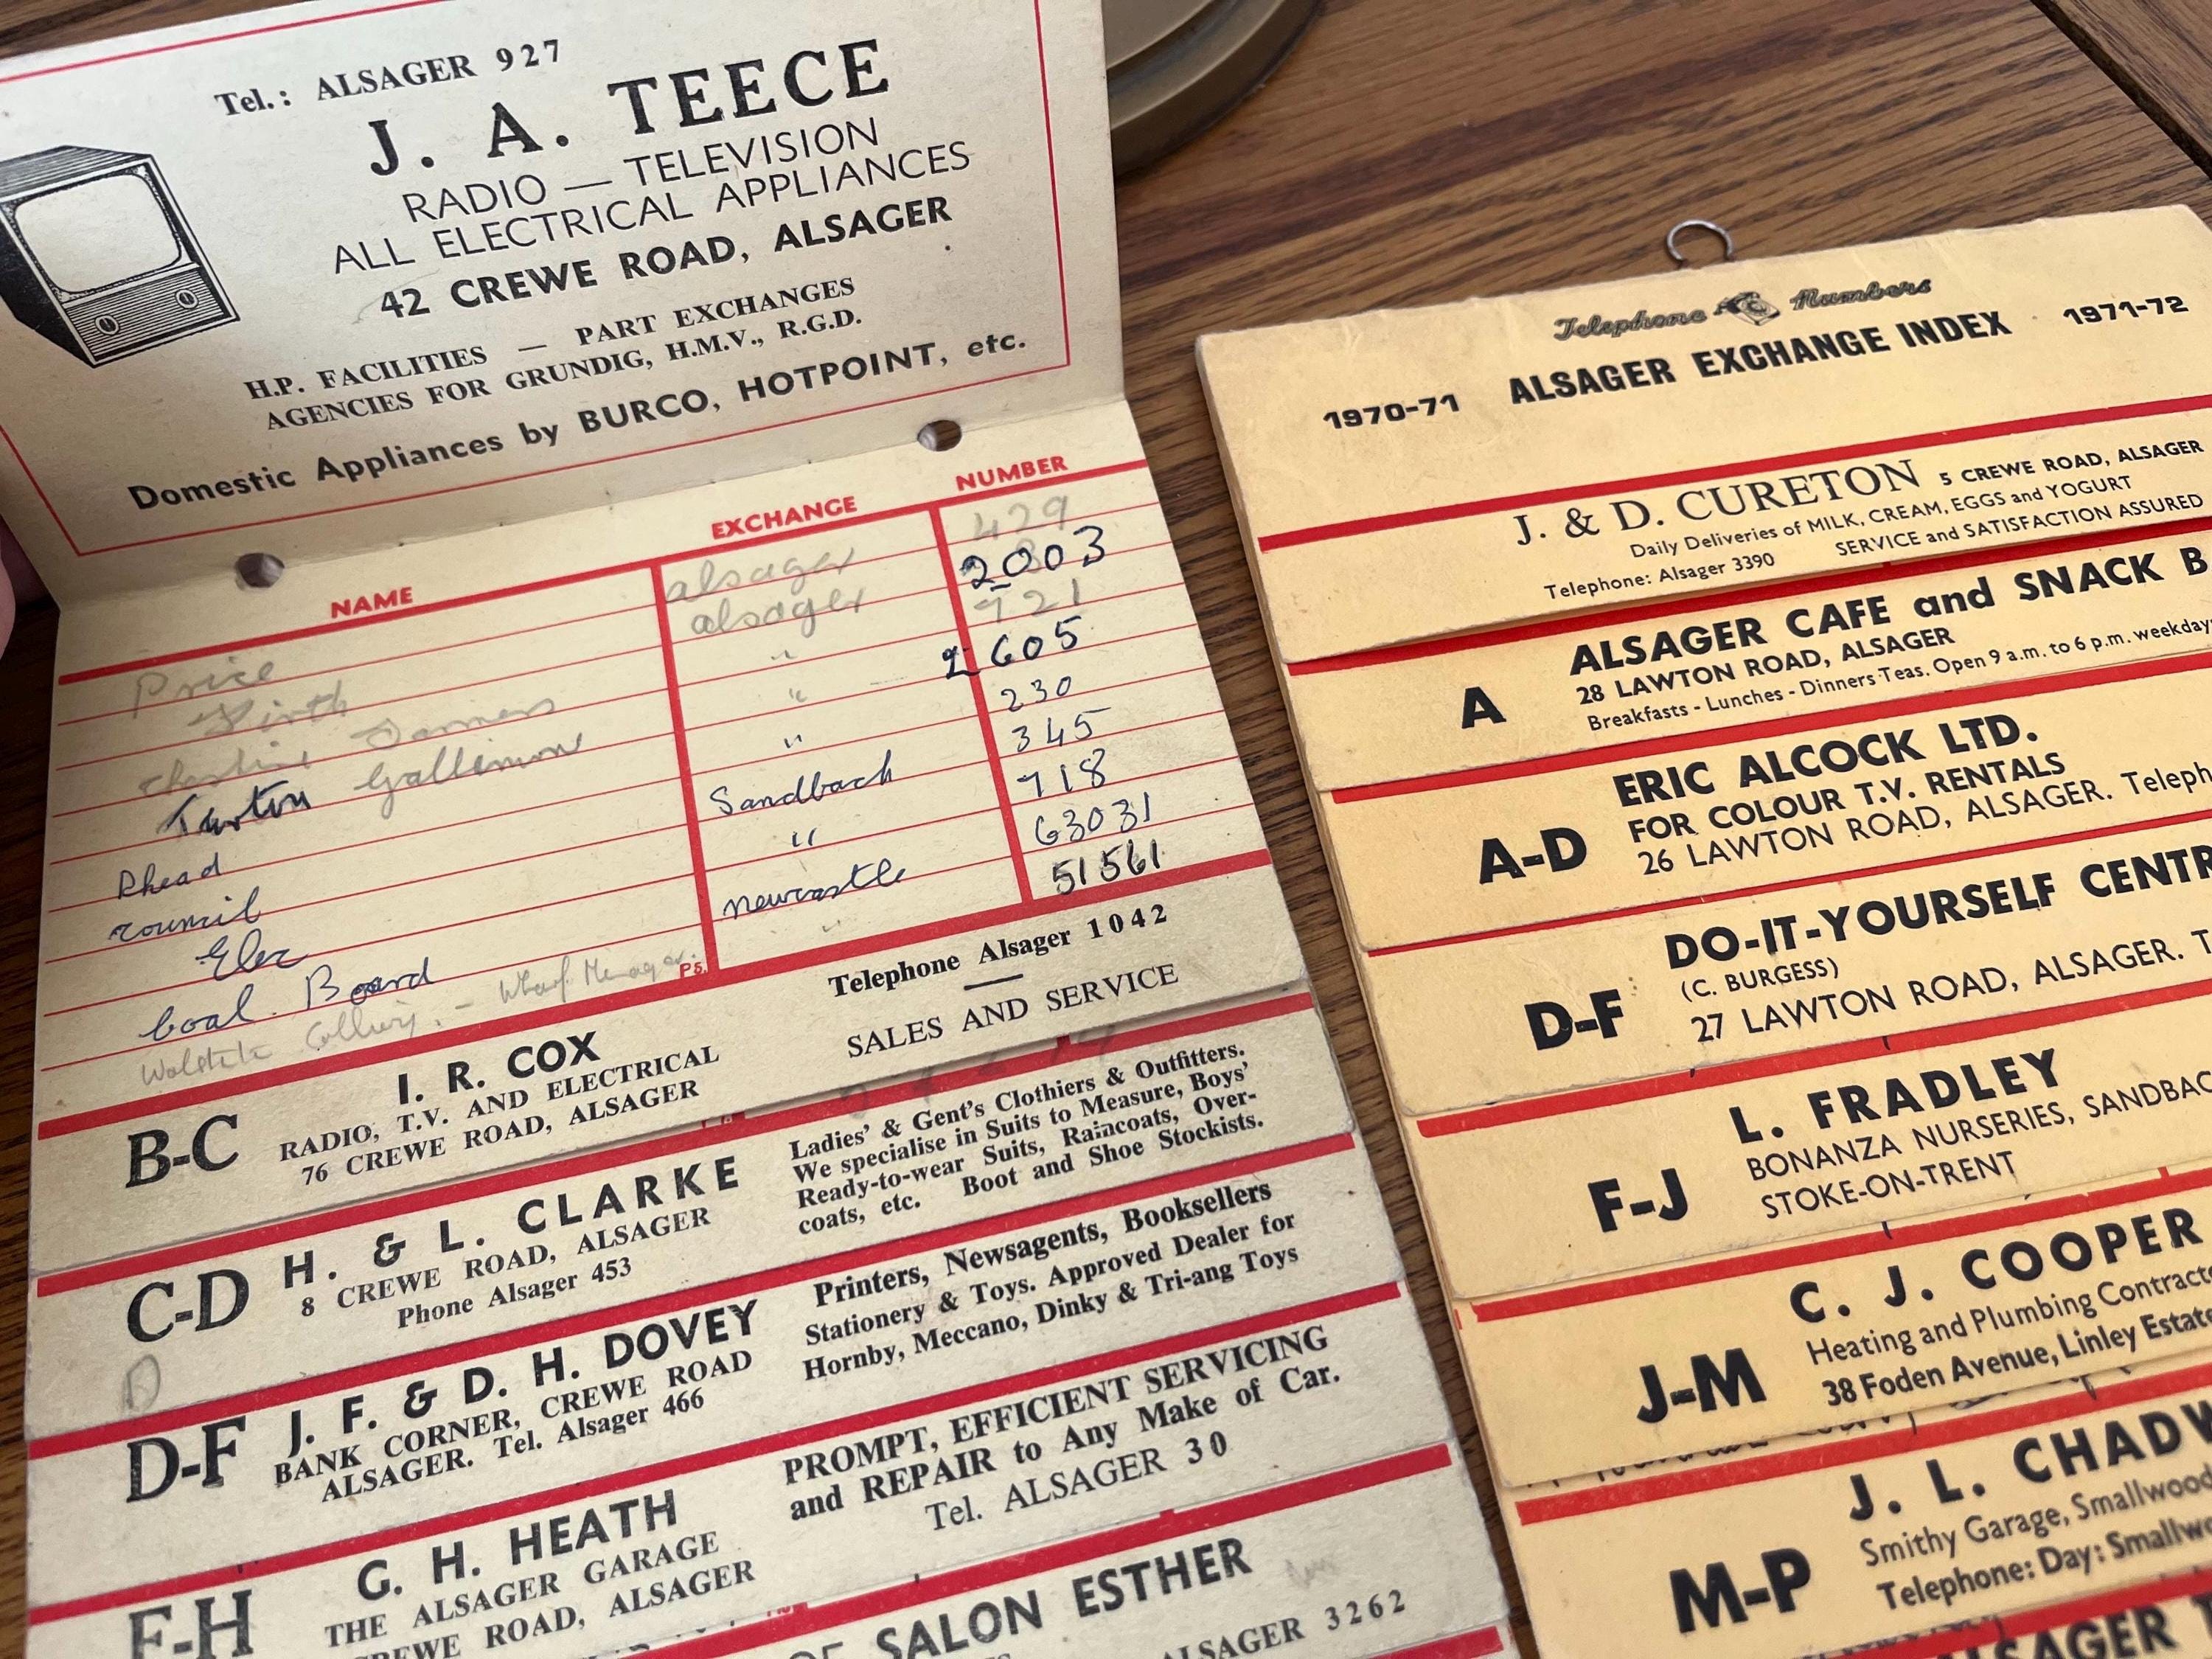 Tel.: ALSAGER 927
J. A. TEECE
RADIO — TELEVISION
ALL ELECTRICAL APPLIANCES
42 CREWE ROAD, ALSAGER
H.P. FACILITIES — PART EXCHANGES
AGENCIES FOR GRUNDIG, H.M.V., R.G.D.
Domestic Appliances by BURCO, HOTPOINT, etc.
NAME EXCHANGE NUMBER
Price alsager 429
alsager 2003
" 721
Gallimore " 2605
Rhead " 230
council Sandbach 345
Elec " 718
Coal Board newcastle 63031
Colliery. - Wharf Manager. 51561
P.S.
B-C
I. R. COX
RADIO, T.V. AND ELECTRICAL
76 CREWE ROAD, ALSAGER
Telephone Alsager 1042
SALES AND SERVICE
C-D
H. & L. CLARKE
8 CREWE ROAD, ALSAGER
Phone Alsager 453
Ladies' & Gent's Clothiers & Outfitters.
We specialise in Suits to Measure, Boys'
Ready-to-wear Suits, Raincoats, Over-
coats, etc. Boot and Shoe Stockists.
D
D-F
J. F. & D. H. DOVEY
BANK CORNER, CREWE ROAD
ALSAGER. Tel. Alsager 466
Printers, Newsagents, Booksellers
Stationery & Toys. Approved Dealer for
Hornby, Meccano, Dinky & Tri-ang Toys
F-H
G. H. HEATH
THE ALSAGER GARAGE
CREWE ROAD, ALSAGER
PROMPT, EFFICIENT SERVICING
and REPAIR to Any Make of Car.
Tel. ALSAGER 30
SALON ESTHER
ALSAGER 3262
Telephone Numbers
1970-71 ALSAGER EXCHANGE INDEX 1971-72
J. & D. CURETON 5 CREWE ROAD, ALSAGER
Daily Deliveries of MILK, CREAM, EGGS and YOGURT
Telephone: Alsager 3390 SERVICE and SATISFACTION ASSURED
A
ALSAGER CAFE and SNACK B
28 LAWTON ROAD, ALSAGER
Breakfasts - Lunches - Dinners Teas. Open 9 a.m. to 6 p.m. weekday
A-D
ERIC ALCOCK LTD.
FOR COLOUR T.V. RENTALS
26 LAWTON ROAD, ALSAGER. Teleph
D-F
DO-IT-YOURSELF CENTR
(C. BURGESS)
27 LAWTON ROAD, ALSAGER. T
F-J
L. FRADLEY
BONANZA NURSERIES, SANDBAC
STOKE-ON-TRENT
J-M
C. J. COOPER
Heating and Plumbing Contracto
38 Foden Avenue, Linley Estate
M-P
J. L. CHADW
Smithy Garage, Smallwood
Telephone: Day: Smallwo
ALSAGER T